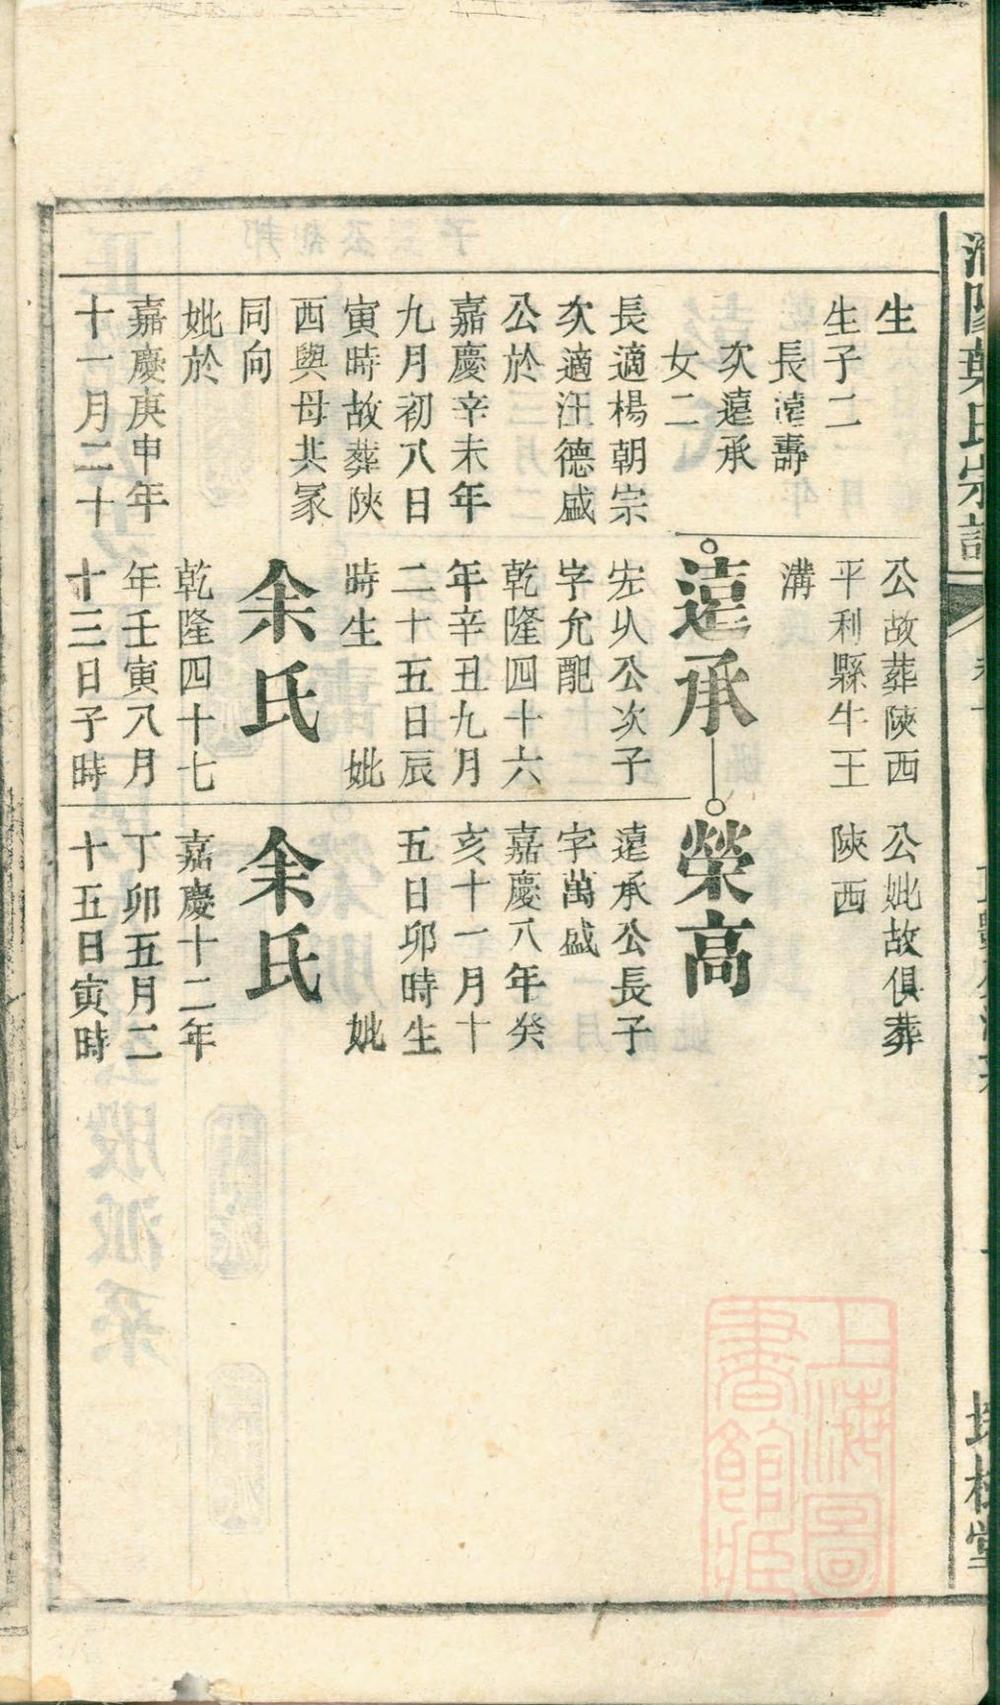 生
生子二
長遠壽
次遠承
女二
長適楊朝宗
次適汪德盛
公於
嘉慶辛未年
九月初八日
寅時故葬陝
西與母共冢
同向
妣於
嘉慶庚申年
十一月二十
公故葬陝西
平利縣牛王
溝
遠承
宏㕥公次子
字允配
乾隆四十六
年辛丑九月
二十五日辰
時生 妣
余氏
乾隆四十七
年壬寅八月
十三日子時
公妣故俱葬
陝西
榮高
遠承公長子
字萬盛
嘉慶八年癸
亥十一月十
五日卯時生
妣
余氏
嘉慶十二年
丁卯五月二
十五日寅時
上海圖
書館藏